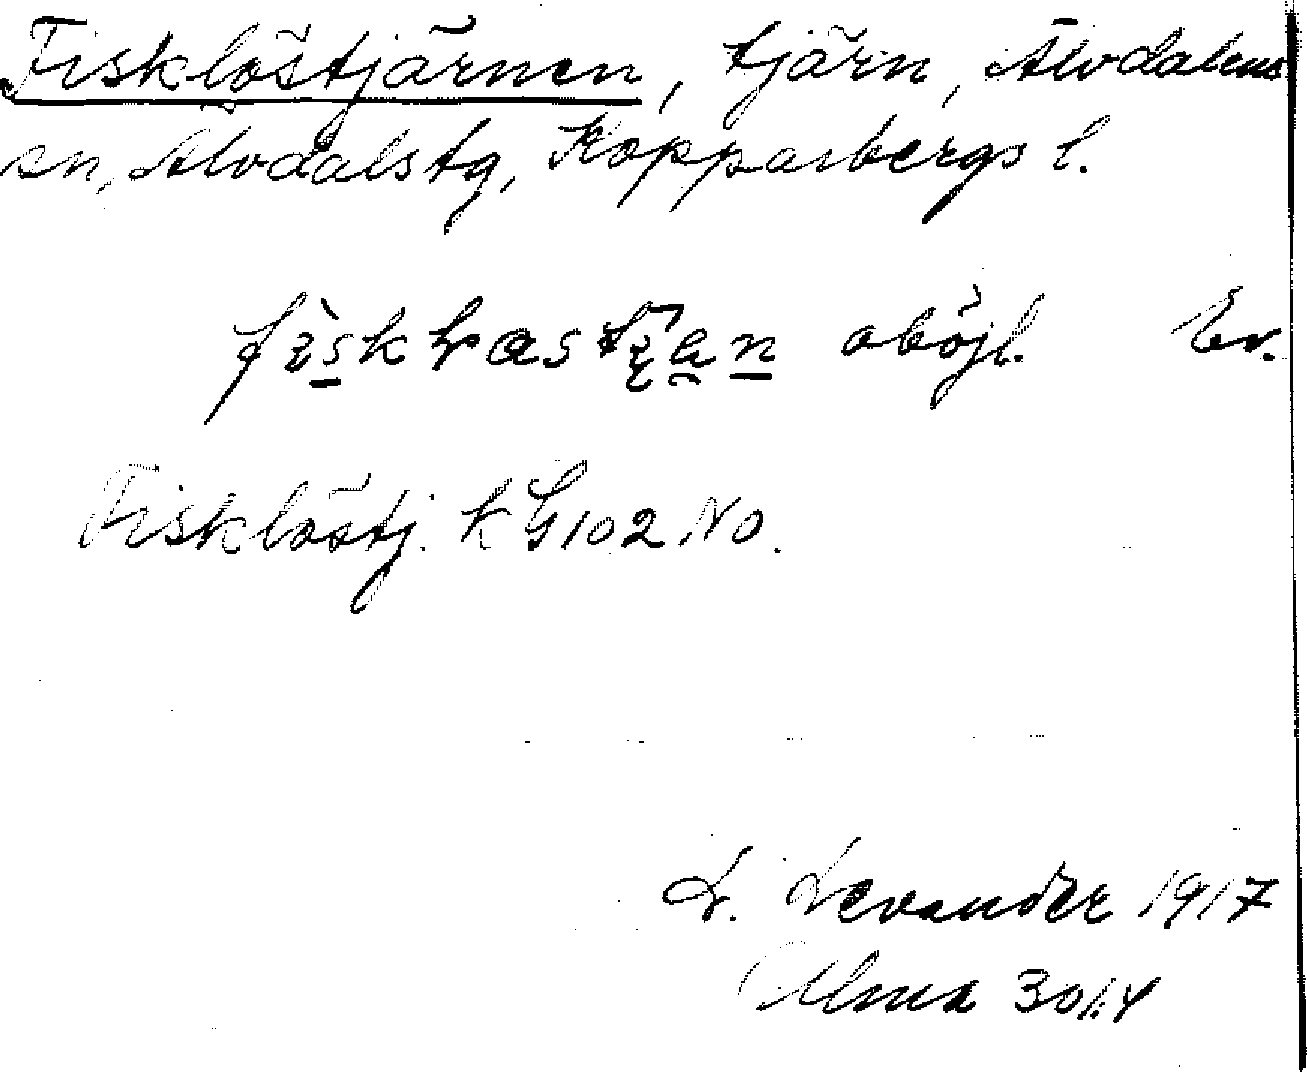 Fisklöstjärnen, tjärn, Älvdalens
sn, Älvdals tg, Kopparbergs l.
oböjl. Ev.
Fisklöstj. k G 102 NO.
L. Levander 1917